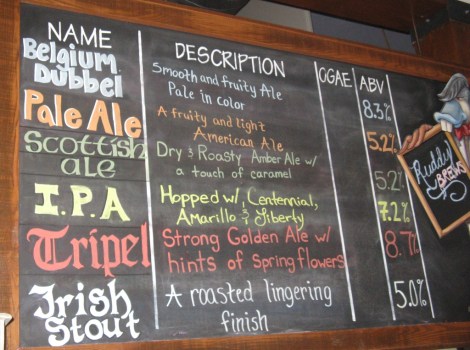 NAME DESCRIPTION OGAE ABV
Belgium Dubbel
Smooth and fruity Ale
Pale in color
8.3%
Pale Ale
A fruity and light
American Ale
5.2%
Scottish ale
Dry & Roasty Amber Ale w/
a touch of caramel
5.2%
I.P.A
Hopped w/, Centennial,
Amarillo & Liberty
7.2%
Tripel
Strong Golden Ale w/
hints of Spring flowers
8.7%
Irish Stout
A roasted lingering
finish
5.0%
Ruddy
BREWS